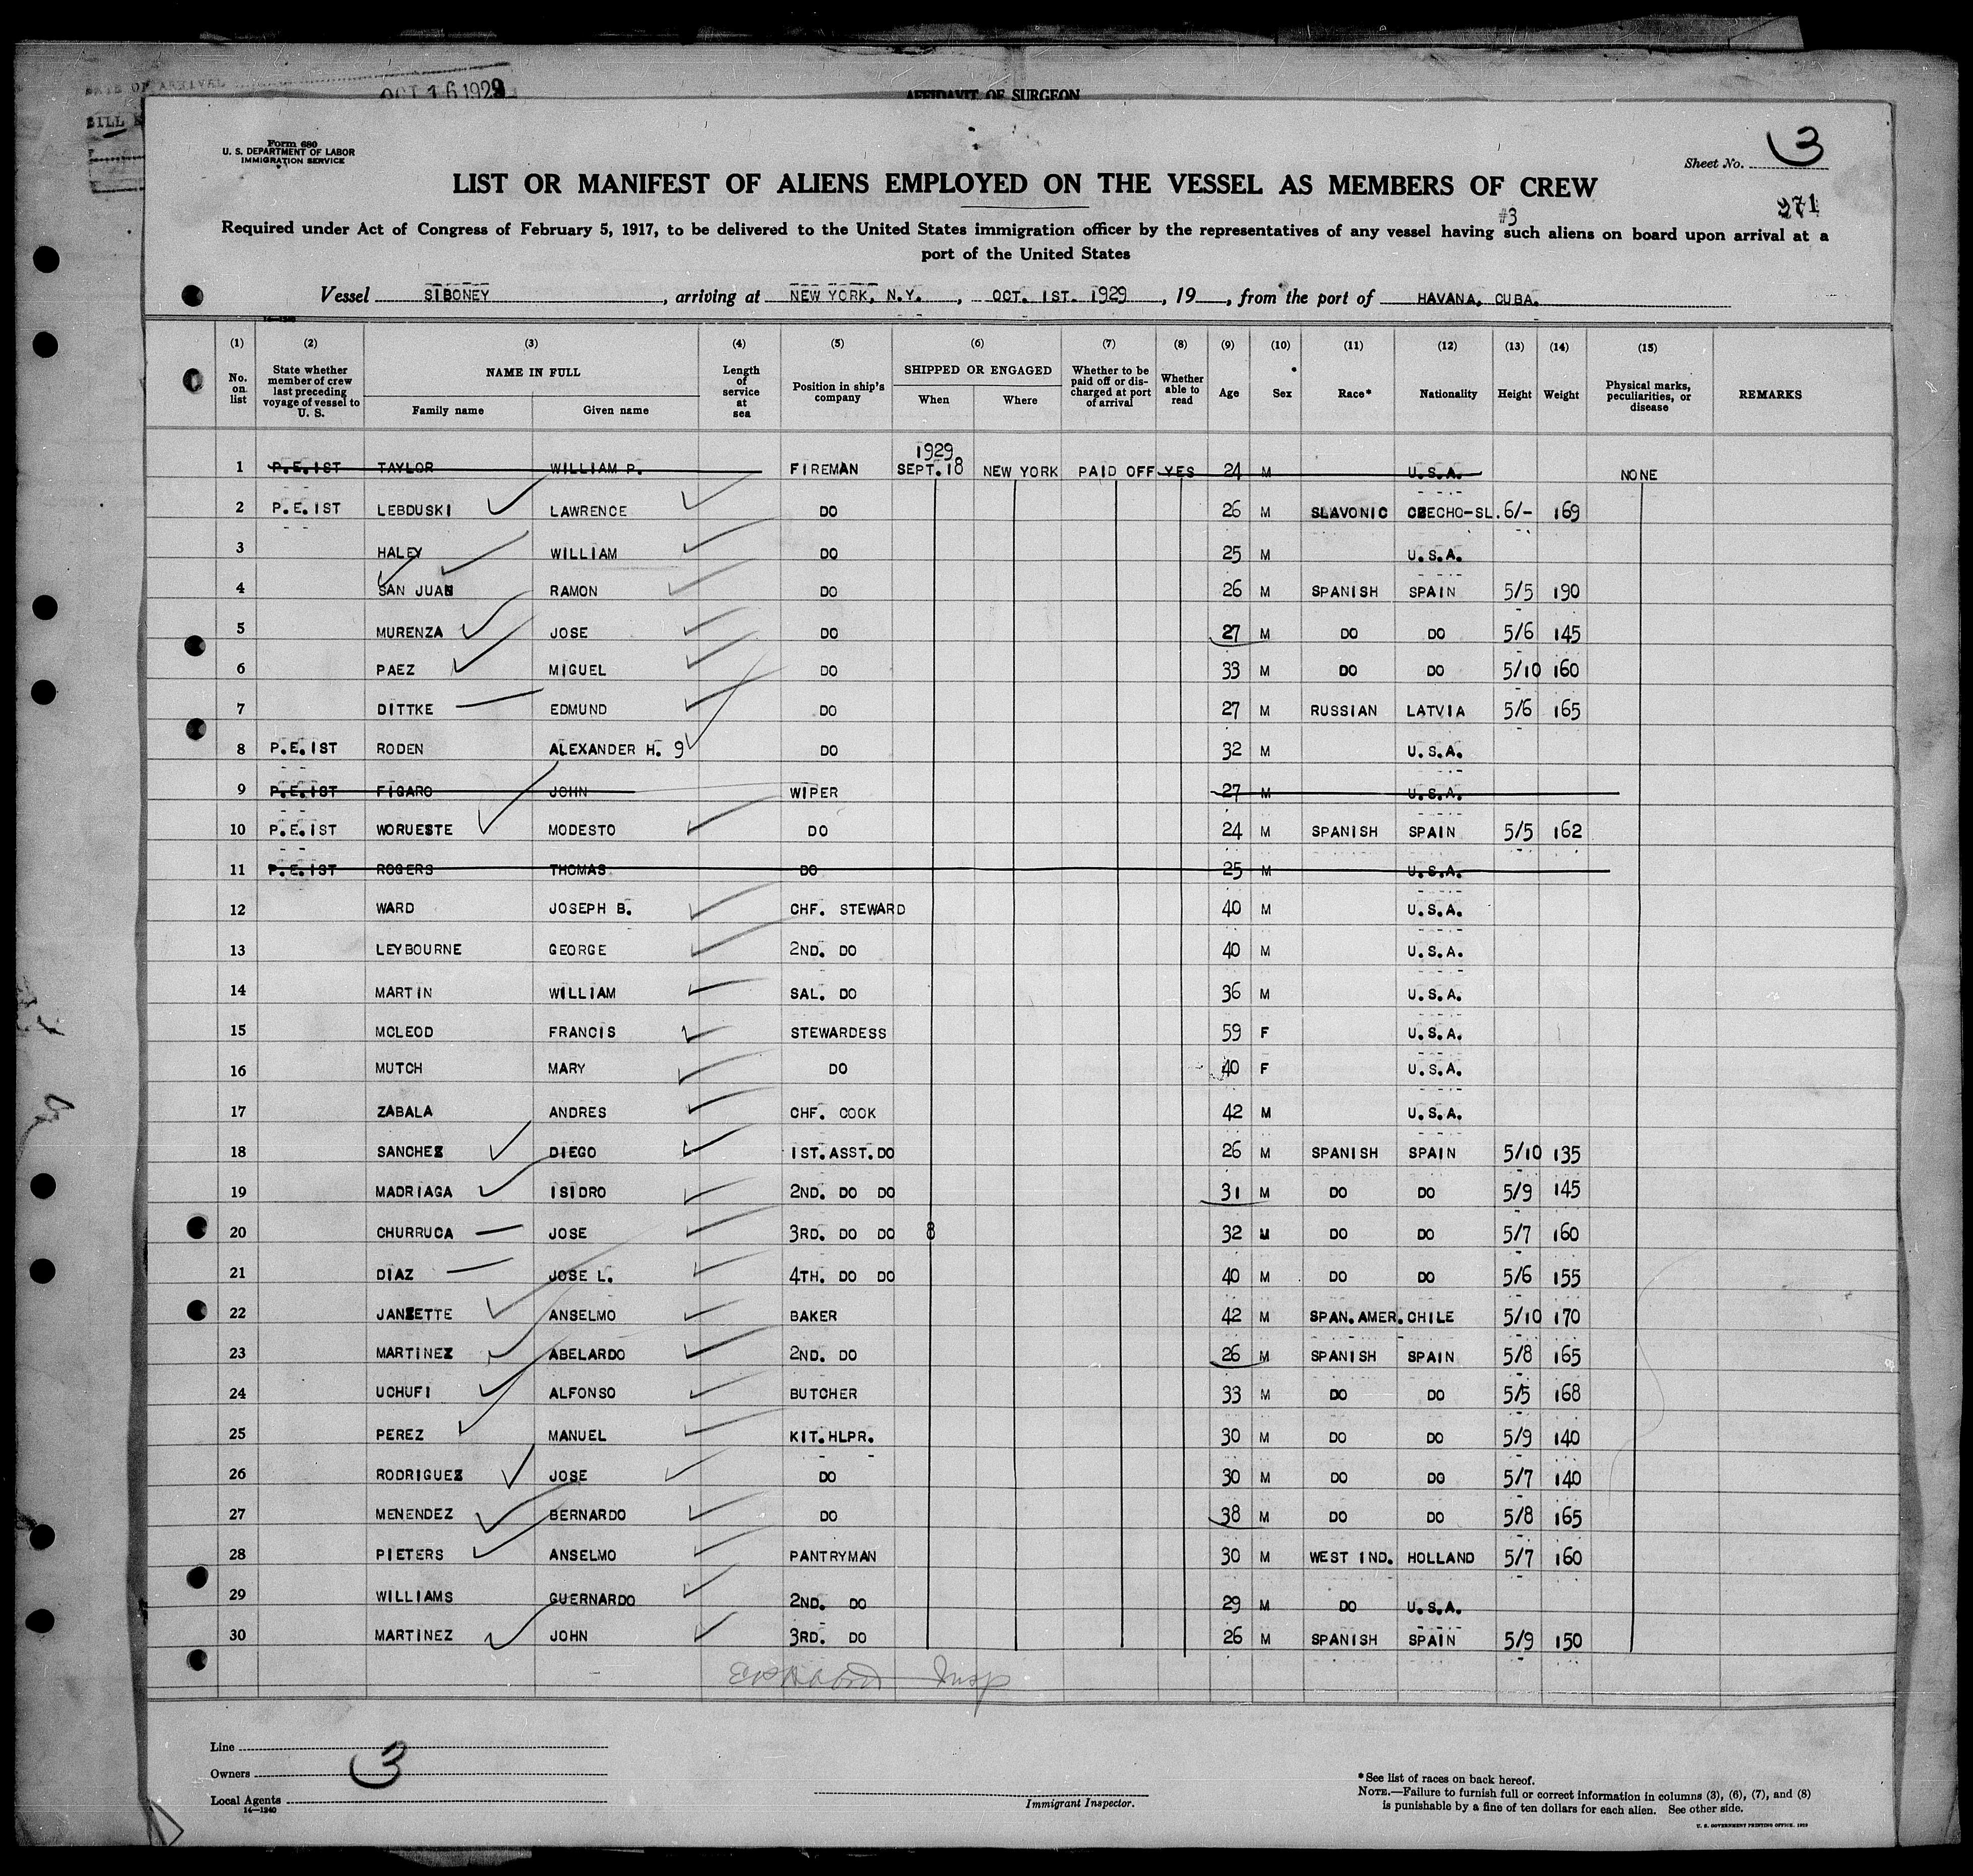 OCT 16 1929
AFFIDAVIT OF SURGEON
Form 680
U. S. DEPARTMENT OF LABOR
IMMIGRATION SERVICE
Sheet No. 3
LIST OR MANIFEST OF ALIENS EMPLOYED ON THE VESSEL AS MEMBERS OF CREW
271
#3
Required under Act of Congress of February 5, 1917, to be delivered to the United States immigration officer by the representatives of any vessel having such aliens on board upon arrival at a
port of the United States
Vessel SIBONEY, arriving at NEW YORK, N.Y., OCT. 1ST. 1929, 19, from the port of HAVANA, CUBA.
14—1240
(1) (2) (3) (4) (5) (6) (7) (8) (9) (10) (11) (12) (13) (14) (15)
No. on list State whether member of crew last preceding voyage of vessel to U. S. NAME IN FULL Family name Given name Length of service at sea Position in ship's company SHIPPED OR ENGAGED When Where Whether to be paid off or discharged at port of arrival Whether able to read Age Sex Race* Nationality Height Weight Physical marks, peculiarities, or disease REMARKS
1929
1 P.E.IST TAYLOR WILLIAM P. FIREMAN SEPT.18 NEW YORK PAID OFF YES 24 M U.S.A. NONE
2 P.E.IST LEBDUSKI LAWRENCE DO 26 M SLAVONIC CZECHO-SL. 6/- 169
3 HALEY WILLIAM DO 25 M U.S.A.
4 SAN JUAN RAMON DO 26 M SPANISH SPAIN 5/5 190
5 MURENZA JOSE DO 27 M DO DO 5/6 145
6 PAEZ MIGUEL DO 33 M DO DO 5/10 160
7 DITTKE EDMUND DO 27 M RUSSIAN LATVIA 5/6 165
8 P.E.IST RODEN ALEXANDER H. 9 DO 32 M U.S.A.
9 P.E.IST FIGARO JOHN WIPER 27 M U.S.A.
10 P.E.IST WORUESTE MODESTO DO 24 M SPANISH SPAIN 5/5 162
11 P.E.IST ROGERS THOMAS DO 25 M U.S.A.
12 WARD JOSEPH B. CHF. STEWARD 40 M U.S.A.
13 LEYBOURNE GEORGE 2ND. DO 40 M U.S.A.
14 MARTIN WILLIAM SAL. DO 36 M U.S.A.
15 MCLEOD FRANCIS STEWARDESS 59 F U.S.A.
16 MUTCH MARY DO 40 F U.S.A.
17 ZABALA ANDRES CHF. COOK 42 M U.S.A.
18 SANCHEZ DIEGO 1ST.ASST.DO 26 M SPANISH SPAIN 5/10 135
19 MADRIAGA ISIDRO 2ND. DO DO 31 M DO DO 5/9 145
20 CHURRUCA JOSE 3RD. DO DO 8 32 M DO DO 5/7 160
21 DIAZ JOSE L. 4TH. DO DO 40 M DO DO 5/6 155
22 JANZETTE ANSELMO BAKER 42 M SPAN.AMER. CHILE 5/10 170
23 MARTINEZ ABELARDO 2ND. DO 26 M SPANISH SPAIN 5/8 165
24 UCHUFI ALFONSO BUTCHER 33 M DO DO 5/5 168
25 PEREZ MANUEL KIT.HLPR. 30 M DO DO 5/9 140
26 RODRIGUEZ JOSE DO 30 M DO DO 5/7 140
27 MENENDEZ BERNARDO DO 38 M DO DO 5/8 165
28 PIETERS ANSELMO PANTRYMAN 30 M WEST IND. HOLLAND 5/7 160
29 WILLIAMS GUERNARDO 2ND. DO 29 M DO U.S.A.
30 MARTINEZ JOHN 3RD. DO 26 M SPANISH SPAIN 5/9 150
Insp
Line
Owners 3
Local Agents
14—1240
Immigrant Inspector.
*See list of races on back hereof.
NOTE.—Failure to furnish full or correct information in columns (3), (6), (7), and (8)
is punishable by a fine of ten dollars for each alien. See other side.
U. S. GOVERNMENT PRINTING OFFICE. 1929